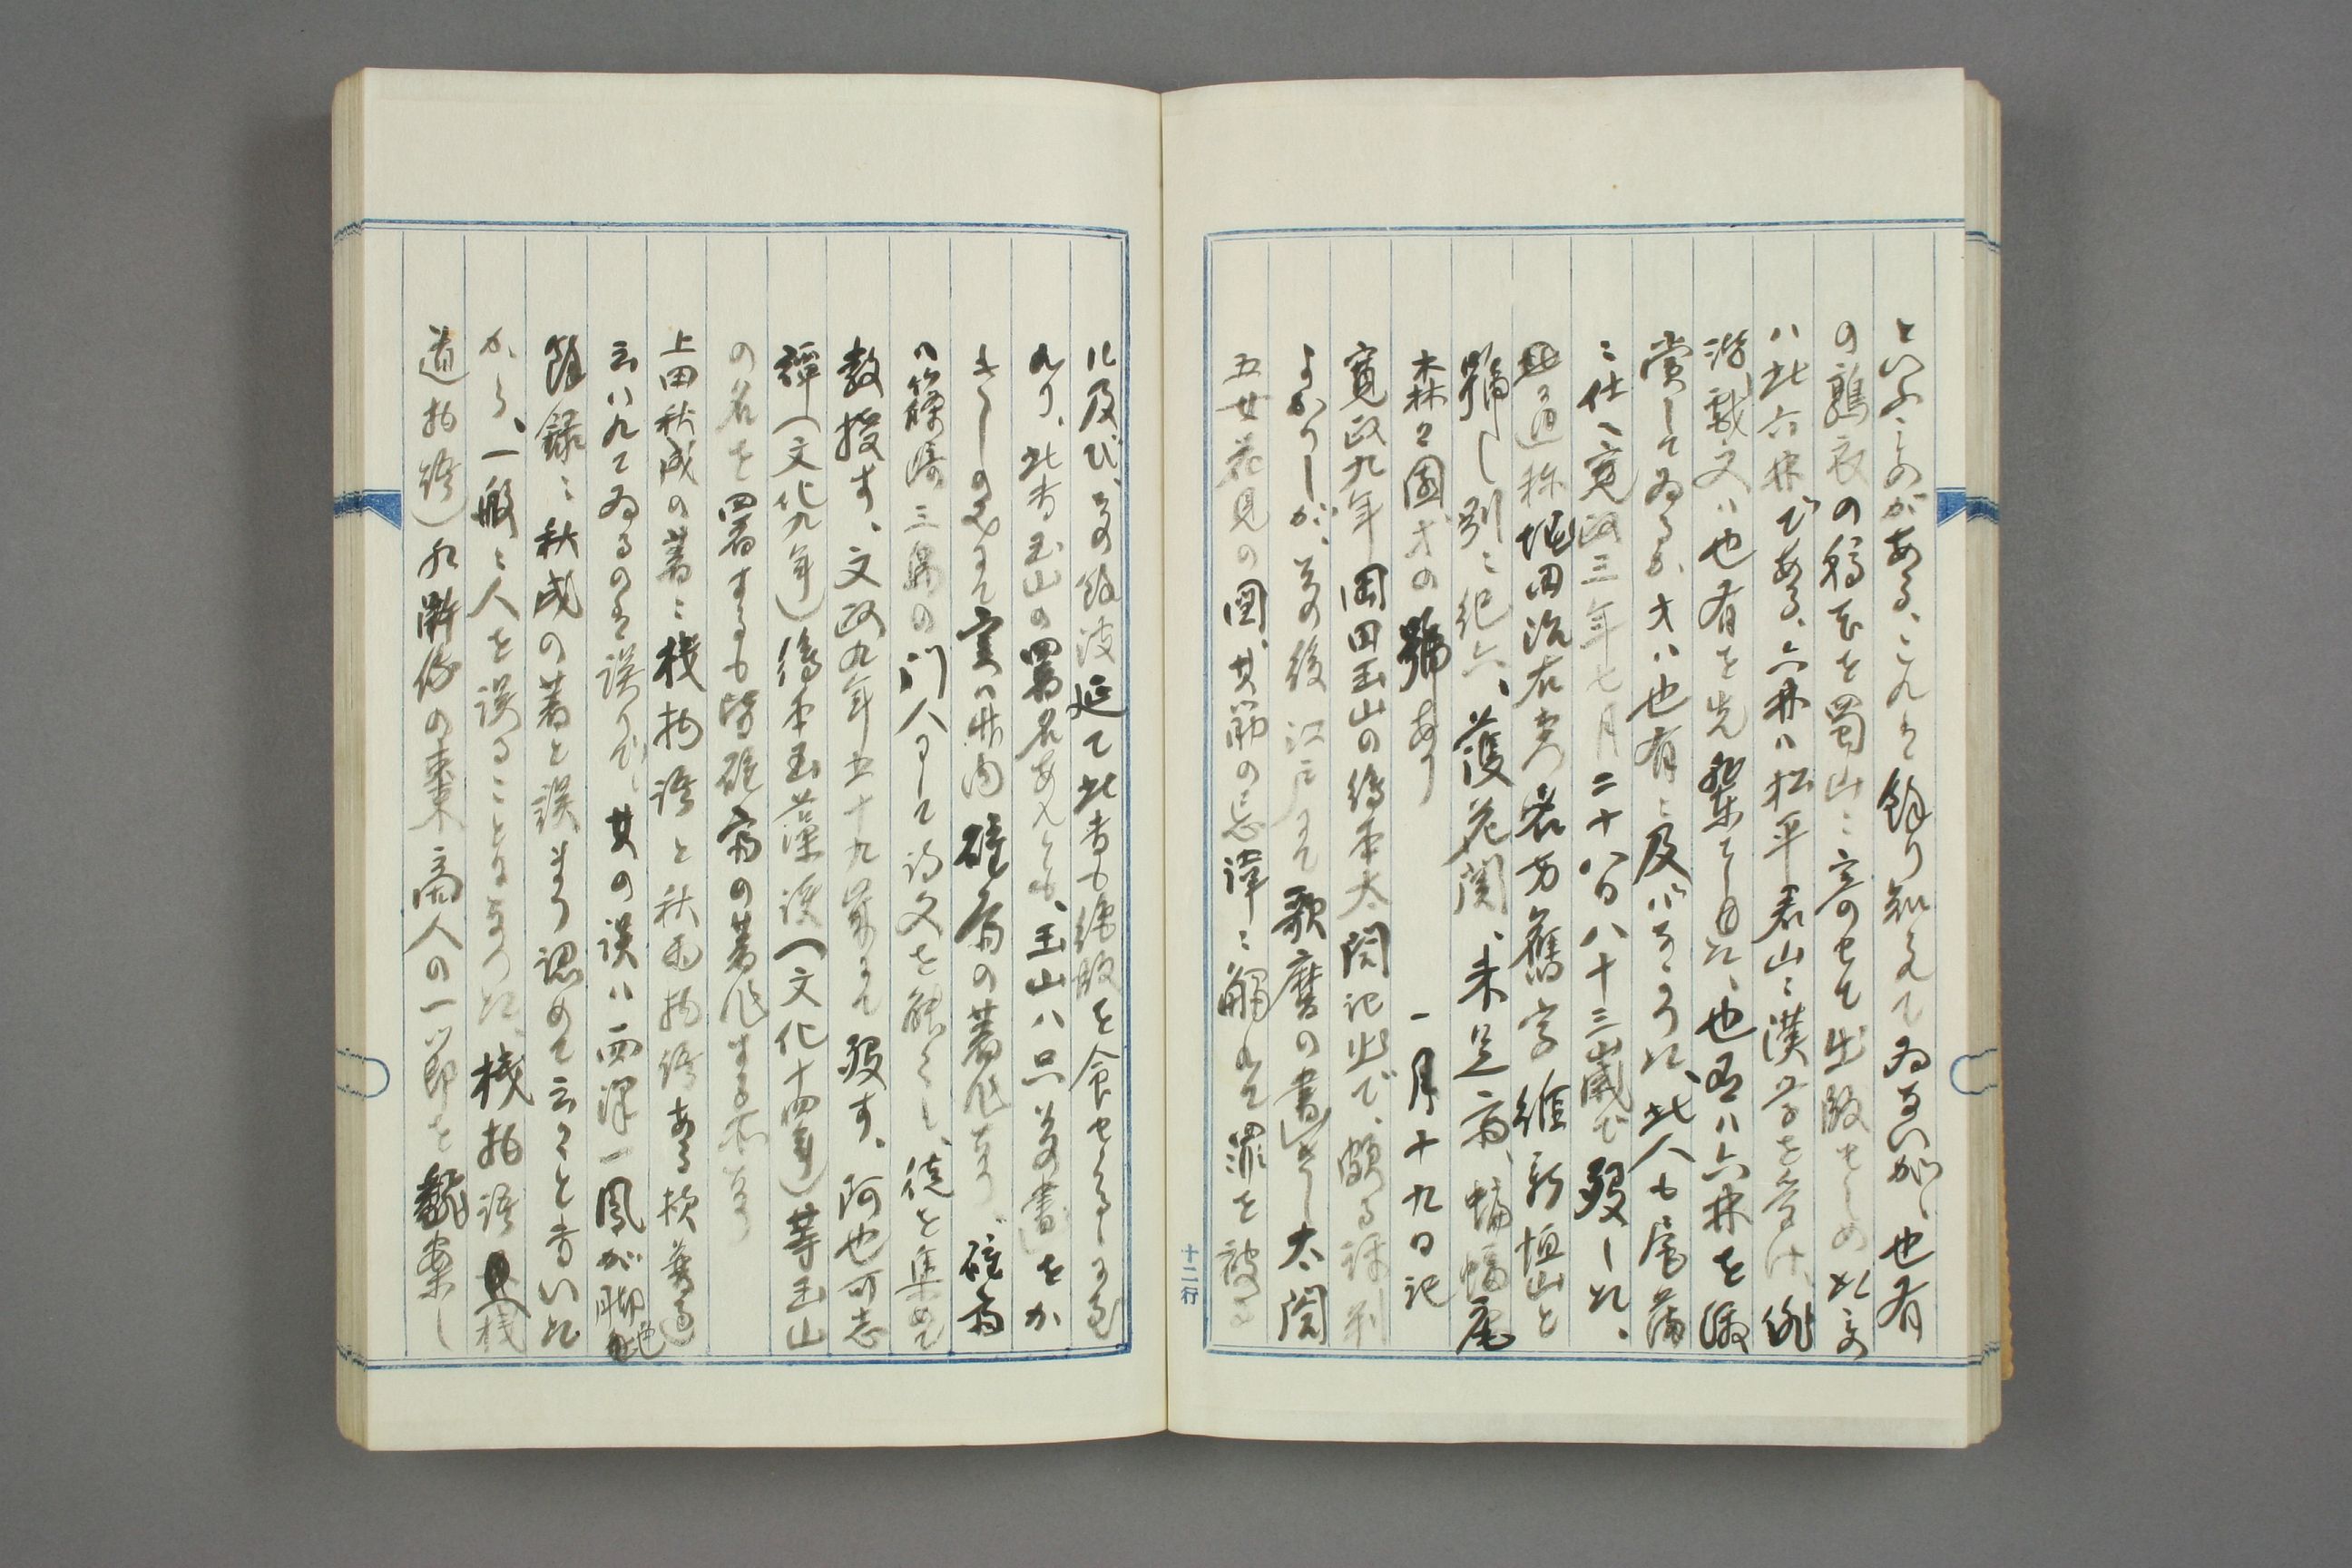 といふものがある、これは餘り知られてゐないが、也有
の鶉衣の稿本を蜀山に寄のせて出版せしめた
ハ此六林である、六林ハ松平君山に漢学を受け、俳
游戯文ハ也有を先輩とした、也有ハ六林を激
賞してゐるが才ハ也有に及ばなかつた、此人も尾藩
ニ仕へ寛政三年七月二十八日八十三歳で歿した、
通称堀田治右衛門名方舊字維新恒山と
號し別ニ紀六、護花関、未足斎、蝙蝠庵
森々園等の號あり
一月十九日記
寛政九年岡田玉山の繪本太閤記出で、頗る評判
よかりしが、其の後江戸にて歌麿の書きし太閤
五女花見の図、其筋の忌諱に觸れて罪を被る
に及び、其の餘波延て此書も絶版を命せらるゝに至
れり、此書玉山の署名あれとも、玉山ハ只其の書をか
きしのみにて実ハ武内確斎の著作なり、確斎
ハ篠崎三島の門人にして詩文を能くし、徒を集めて
教授す、文政九年五十九歳にて歿す、阿也可志
譚(文化九年)繪本玉藻譚(文化十四年)等玉山
の名を署するも皆確斎の著作する所なり
上田秋成の著に桟物語と秋雨物語ある様普通
云ハれてゐるのは誤りで、其の誤ハ西澤一鳳が脚色
餘録に秋成の著と誤まり認めて云々と書いた
から、一般に人を誤ることになつた、桟物語
道物語)は断份の東斎人の一節を飜案し
十二行